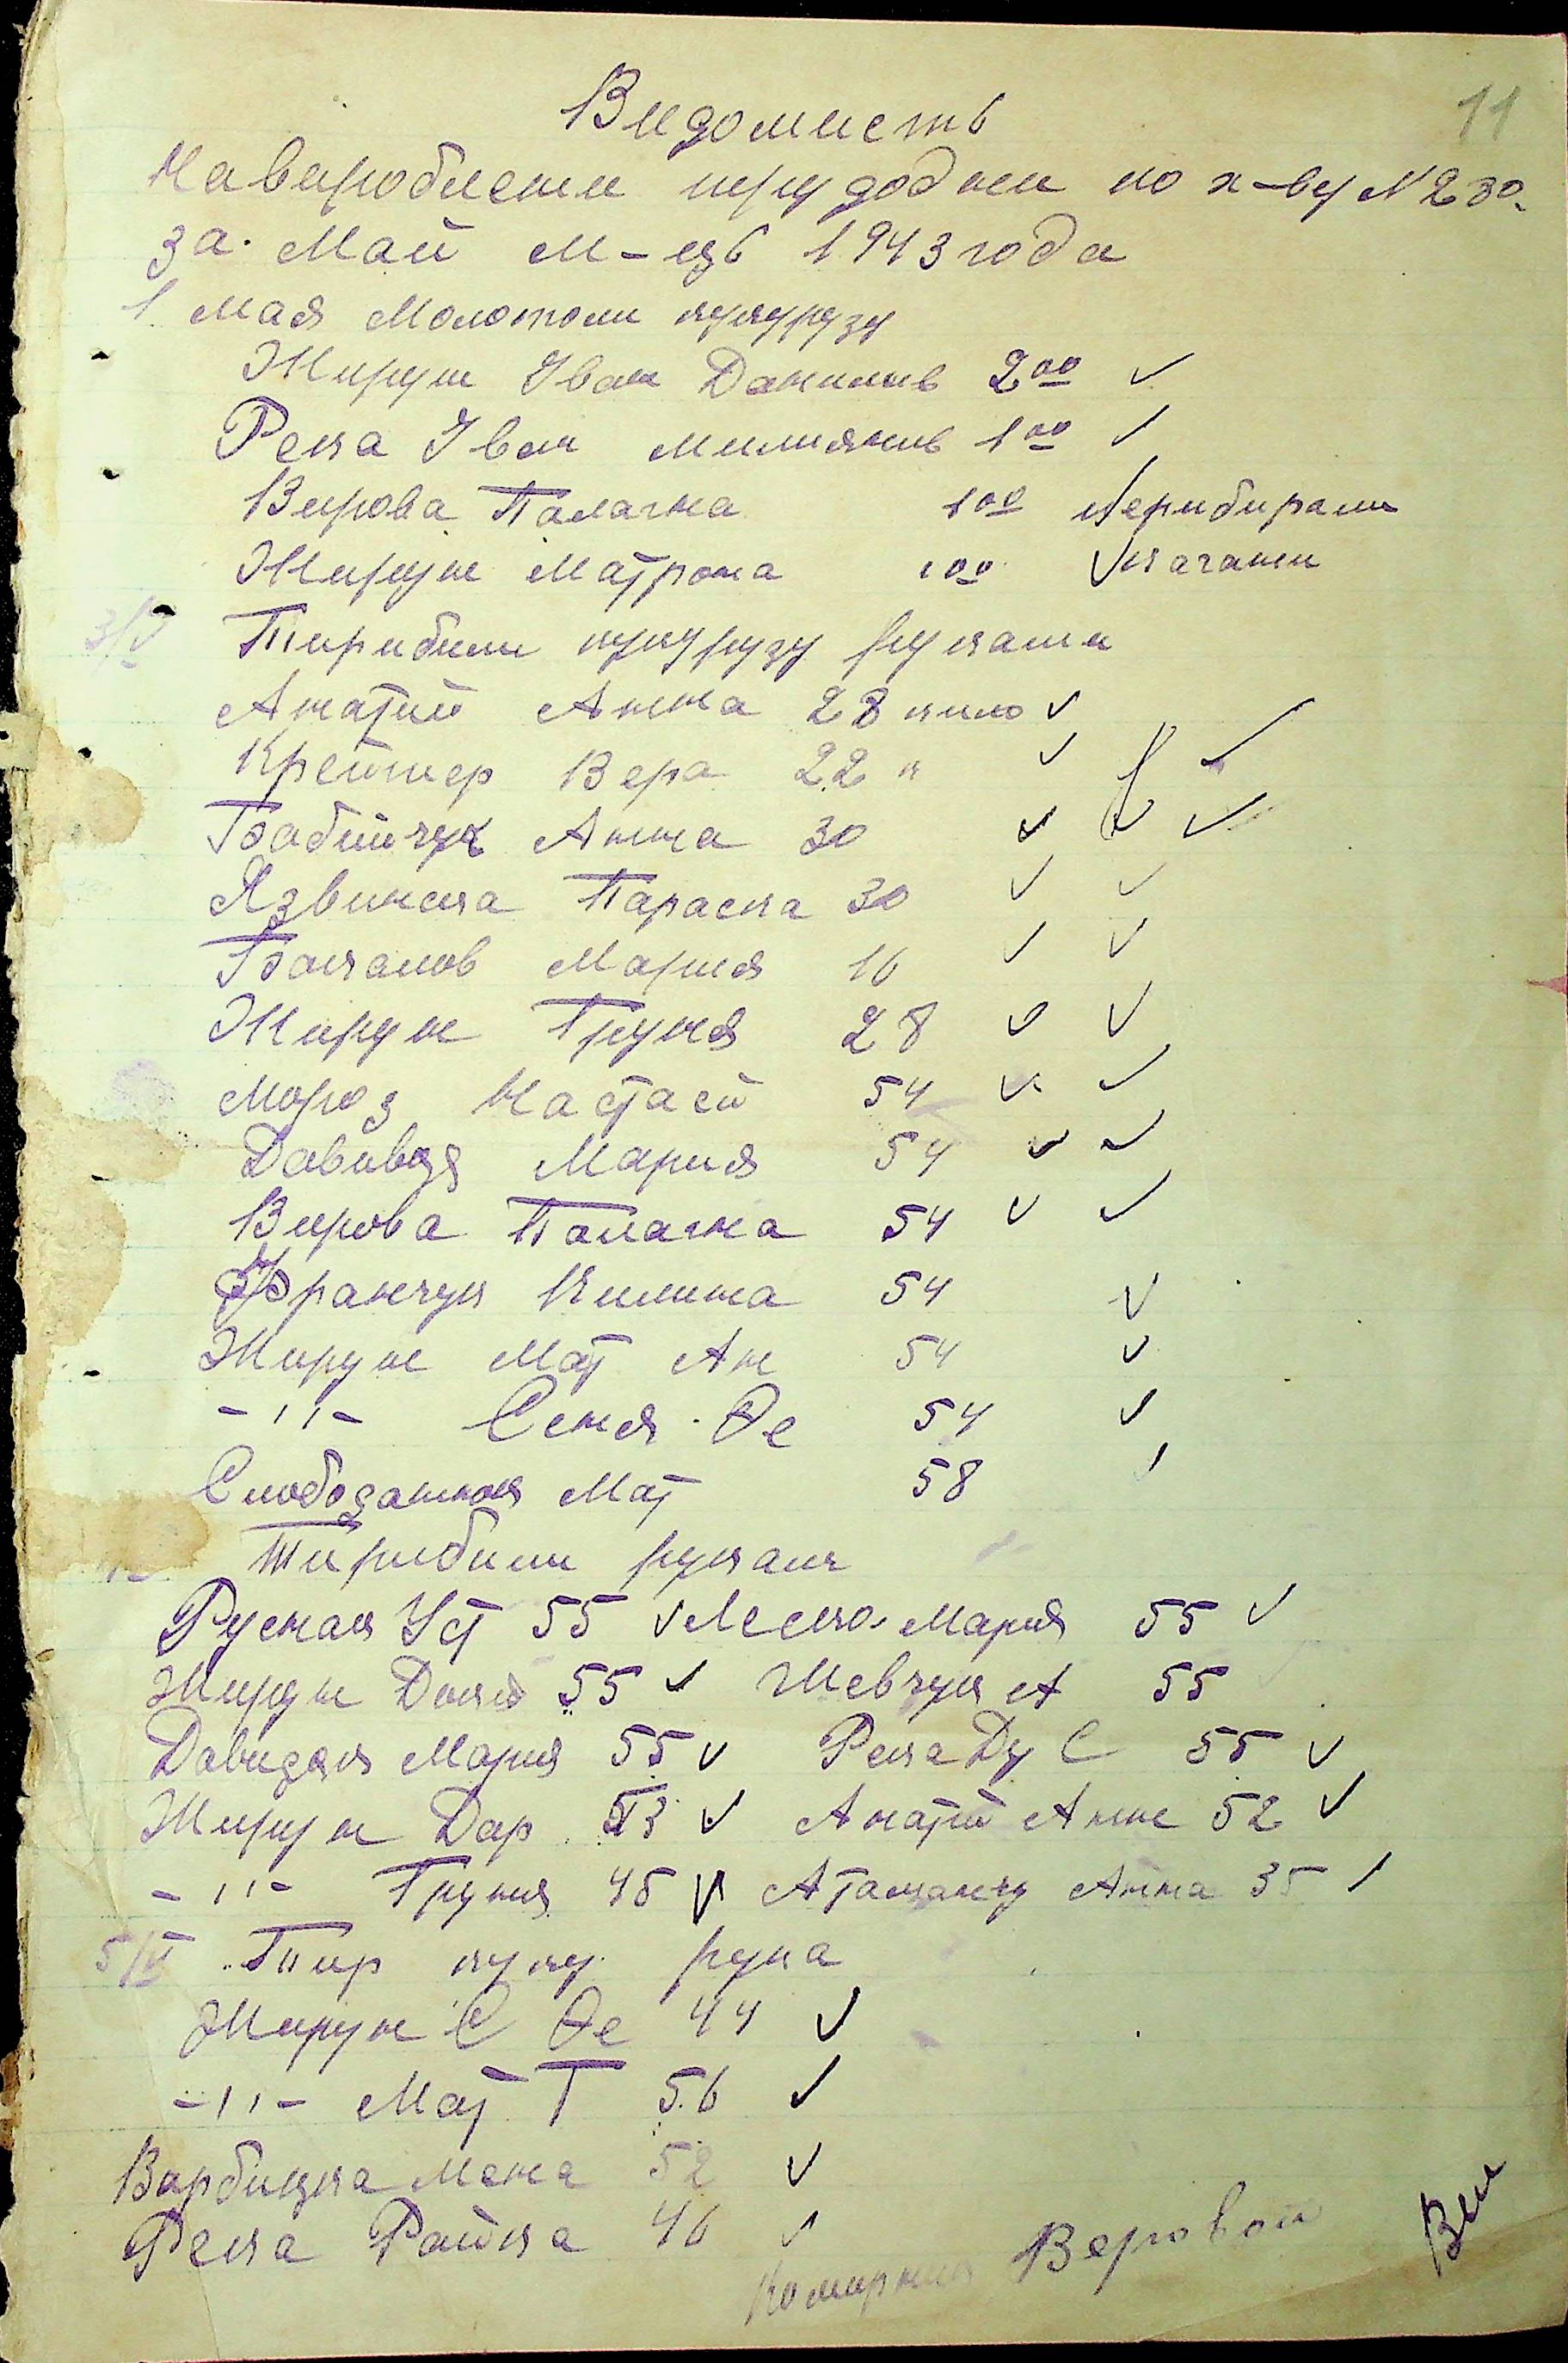 11
Видомисть
На виробле­ни трудодни по х-ву N 230.
за. Май М-ць 1943 года
1 мая Молотоли кукурузу
Жирун Іван Данилив 2 00 ✓
Река Іван милиянив 1 00 ✓
Вирова Палагна 1 00 ✓ перибирали
Жирун Матрона 1 00 ✓ качани
3/V Тирибили кукурузу руками
Анатий Анна 28 кило ✓
Крейтер Вера 22 к ✓ ✓
Бабийчук Анна 30 ✓ ✓ ✓
Язвинска Параска 30 ✓ ✓
Мария 16 ✓ ✓
Жирун Груня 28 ✓ ✓
Мороз Настасий 54 ✓ ✓
Мария 54 ✓ ✓
Вирова Палагна 54 ✓ ✓
Франчук Килина 54 ✓
Жирун Мат Ан 54 ✓
-"- Сеня. Фе 54 ✓
Слободянюк Мат 58 ✓
Тирибили руками
Руснак Уст 55 ✓ Мария 55 ✓
Жирун 55 ✓ Шевчук А 55
Давидяк Мария 55 ✓ Река Ду С 55 ✓
Жирун Дар 53 ✓ Анатий Анне 52 ✓
-"- Груня 45 ✓ Анна 35 ✓
5/V Тир куку. рука
Жирун С Фе 44 ✓
-"- Мат Т 56 ✓
Варбицка 52 ✓
Река Райка 46 ✓
Комирник Веровой